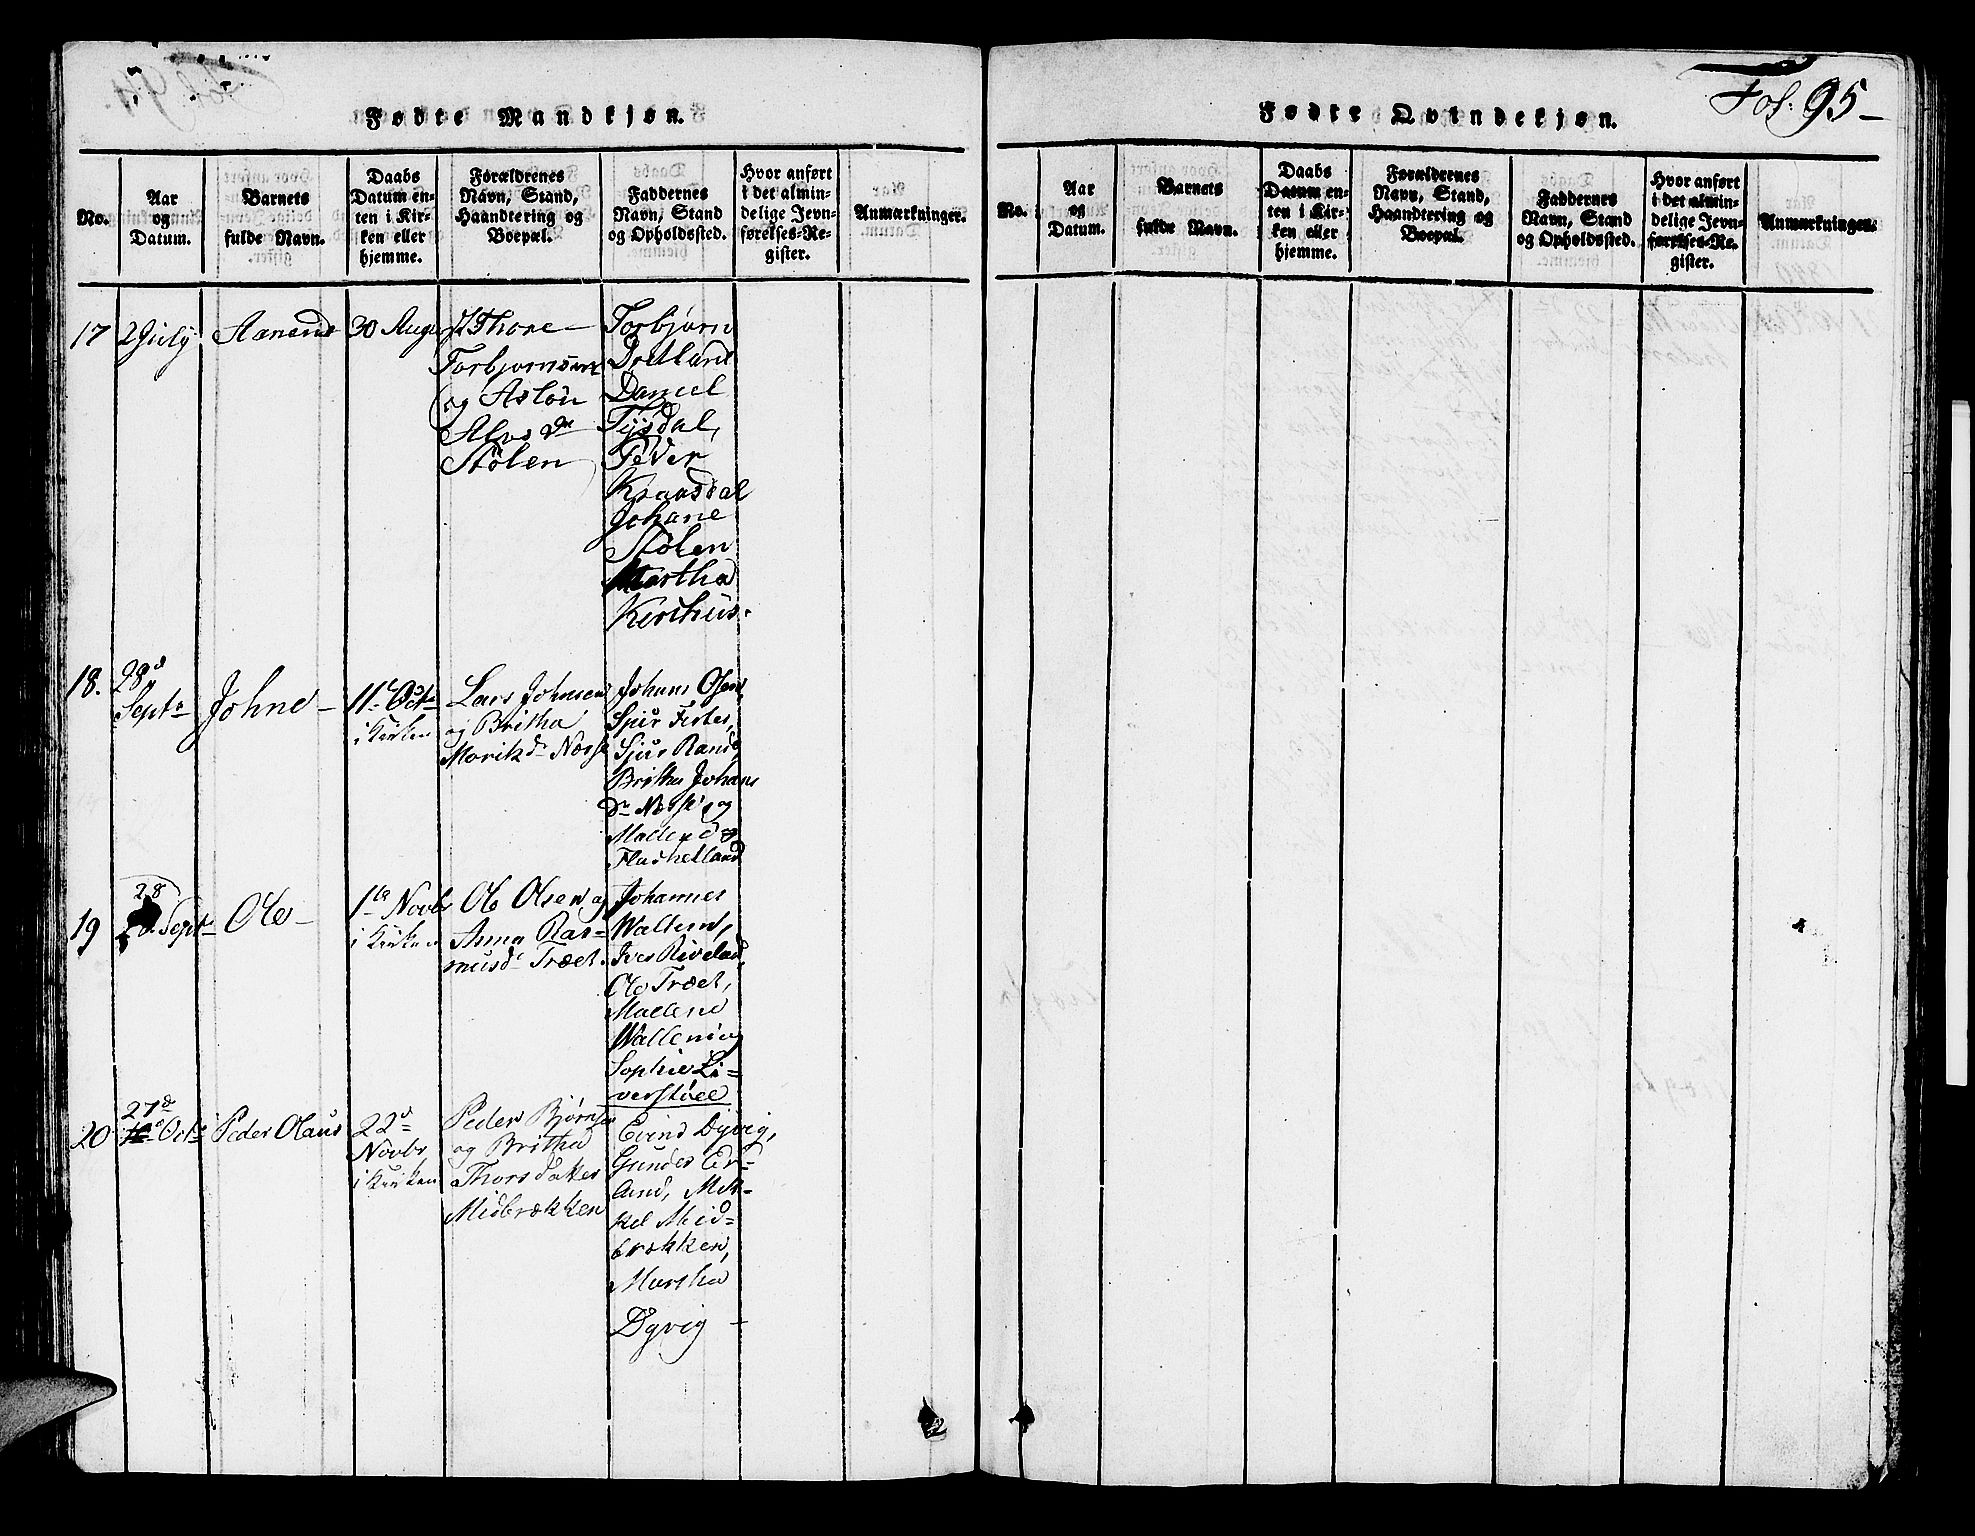 Fødte Mandkjøn.
No.
Aar
og
Datum.
Barnets
fulde Navn.
Daabs
Datum en-
ten i Kir-
ken eller
hjemme.
Forældrenes
Navn, Stand,
Haandtering og
Boepæl.
Faddernes
Navn, Stand
og Opholdssted.
Hvor anført
i det almin-
delige Jevn-
førelses-Re-
gister.
Anmærkninger.
17
2 July
Aanend
30 Aug
Thore
Torbjørnsen
og Asløu
Alvs Dr
Stølen
Torbjørn
Daniel
Tysdal,
Peder
Johane
Stølen
Martha
Kirchus.
18.
28d
Septr
Johne
11te Octr
i Kirken
Lars Johnsen
og Britha
Moriks Dr
Johans Osen,
Sjur Rande
Britha Johans
Dr
og
Mallene
19
28
Septr
Ole
1te Novbr
i Kirken
Ole Olsen og
Anna Ras=
musdr Træet.
Johannes
Wallem,
Ole Træet,
Mallene
Sophie Li=
verstøel
20
27de
Octr
Peder Olaus
22de
Novbr
i Kirken
Peder Bjørnsen
og Britha
Thorsdatter
Midbrækken
Eivind Dyvig,
land, Mik=
kel Mid=
brækken,
Martha
Dyvig
Fol. 95
Fødte Qvindekjøn.
No.
Aar
og
Datum.
Barnets
fulde Navn.
Daabs
Datum en-
ten i Kir-
ken eller
hjemme.
Forældrenes
Navn, Stand,
Haandtering og
Boepæl.
Faddernes
Navn, Stand
og Opholdssted.
Hvor anført
i det almin-
delige Jevn-
førelses-Re-
gister.
Anmærkninger.